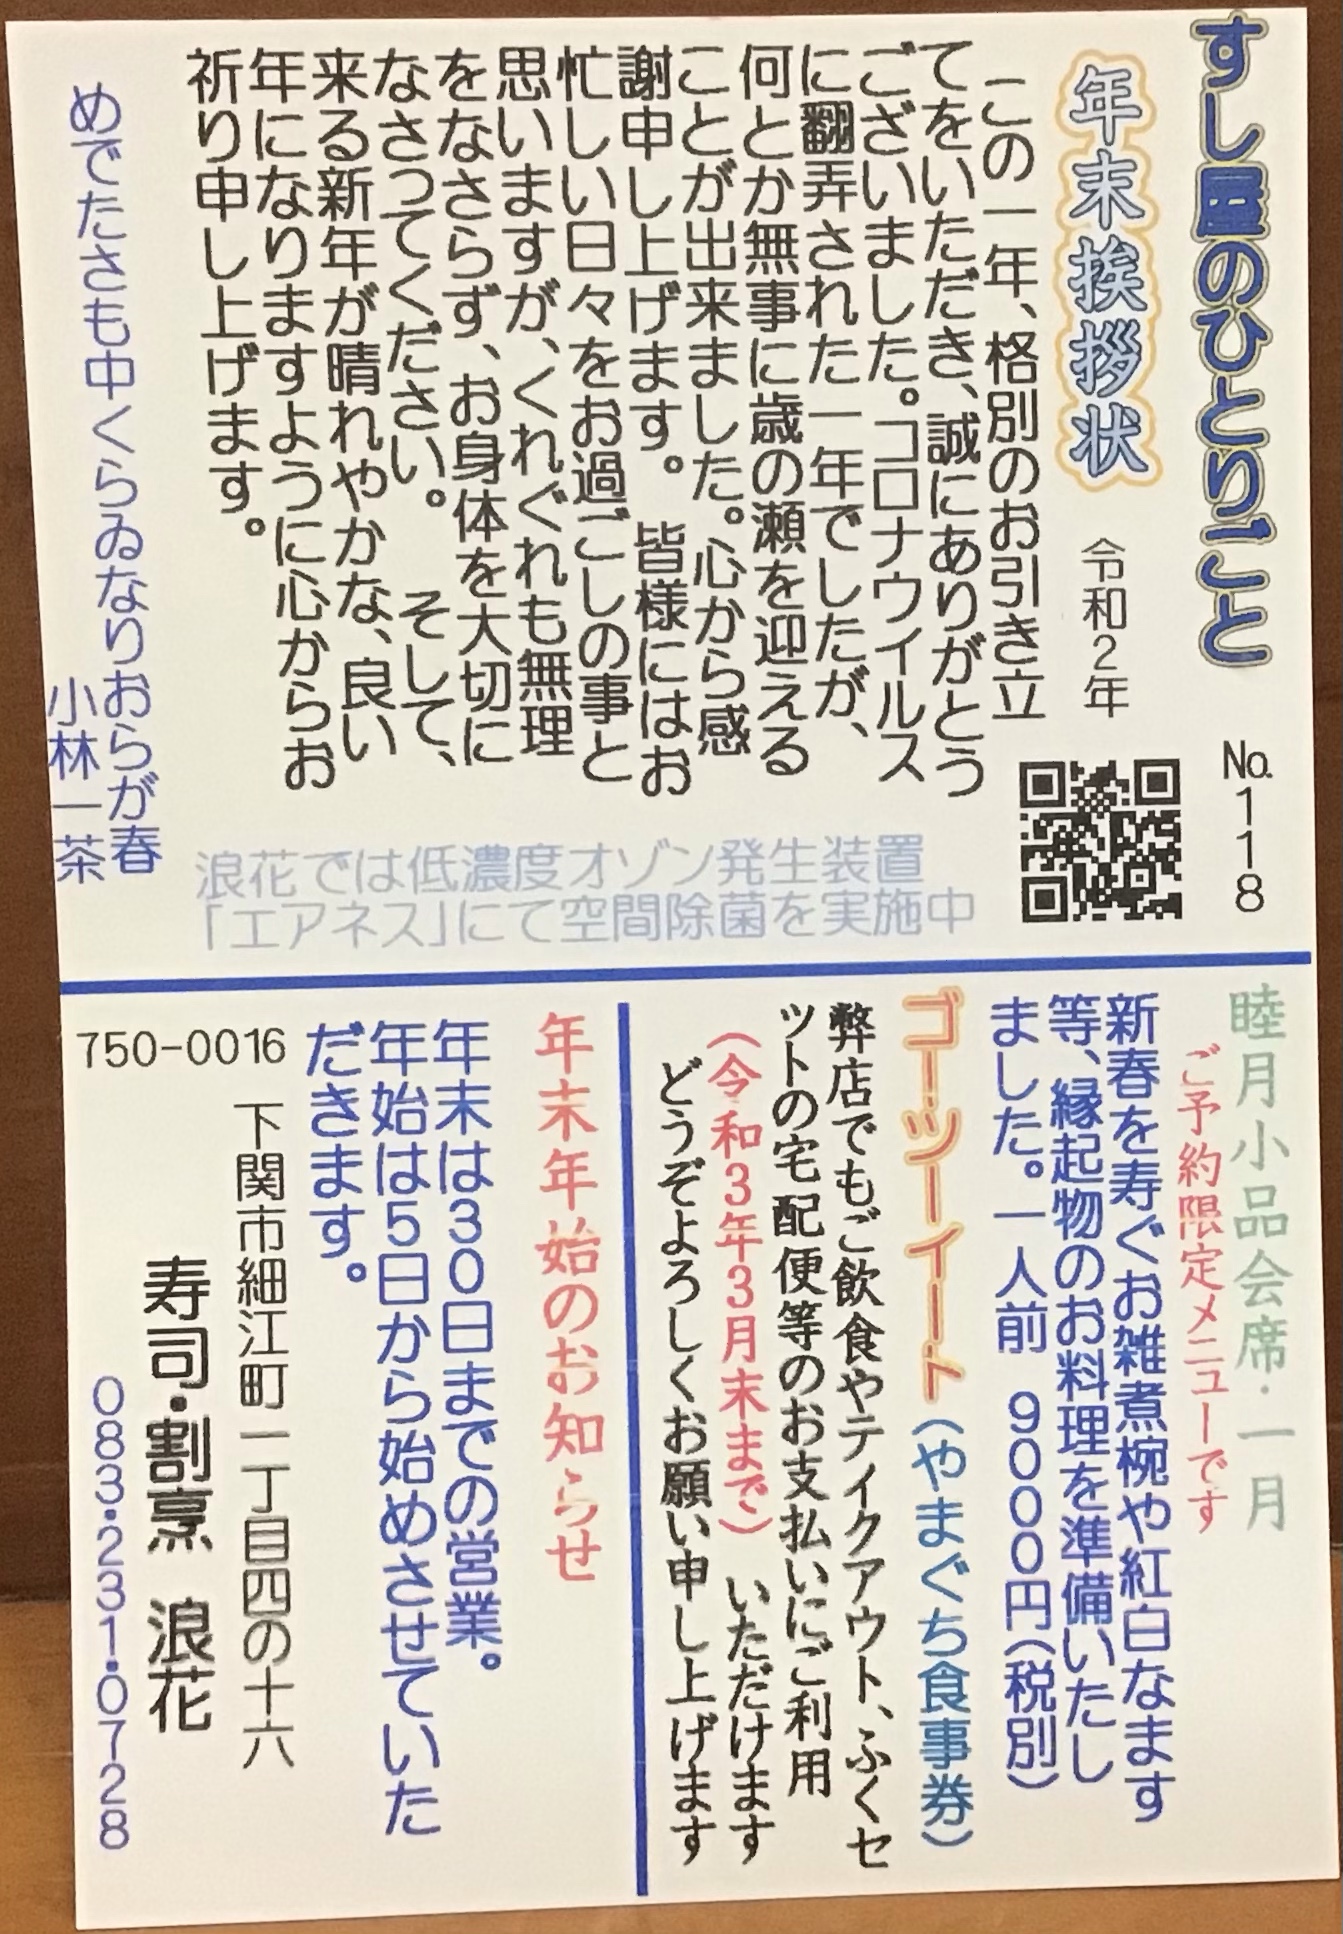 すし屋のひとりごと
No.118
年末挨拶状
令和2年
この一年、格別のお引き立
てをいただき、誠にありがとう
ございました。コロナウイルス
に翻弄された一年でしたが、
何とか無事に歳の瀬を迎える
ことが出来ました。心から感
謝申し上げます。 皆様にはお
忙しい日々をお過ごしの事と
思いますが、くれぐれも無理
をなさらず、お身体を大切に
なさってください。 そして、
来る新年が晴れやかな、良い
年になりますように心からお
祈り申し上げます。
めでたさも中くらゐなりおらが春
小林一茶
浪花では低濃度オゾン発生装置
「エアネス」にて空間除菌を実施中
睦月小品会席・一月
ご予約限定メニューです
新春を寿ぐお雑煮椀や紅白なます
等、縁起物のお料理を準備いたし
ました。一人前 9000円(税別)
ゴーツーイート(やまぐち食事券)
弊店でもご飲食やテイクアウト、ふくセ
ットの宅配便等のお支払いにご利用
(令和3年3月末まで) いただけます
どうぞよろしくお願い申し上げます
年末年始のお知らせ
年末は30日までの営業。
年始は5日から始めさせていた
だきます。
750-0016
下関市細江町一丁目四の十六
寿司・割烹 浪花
083・231・0728